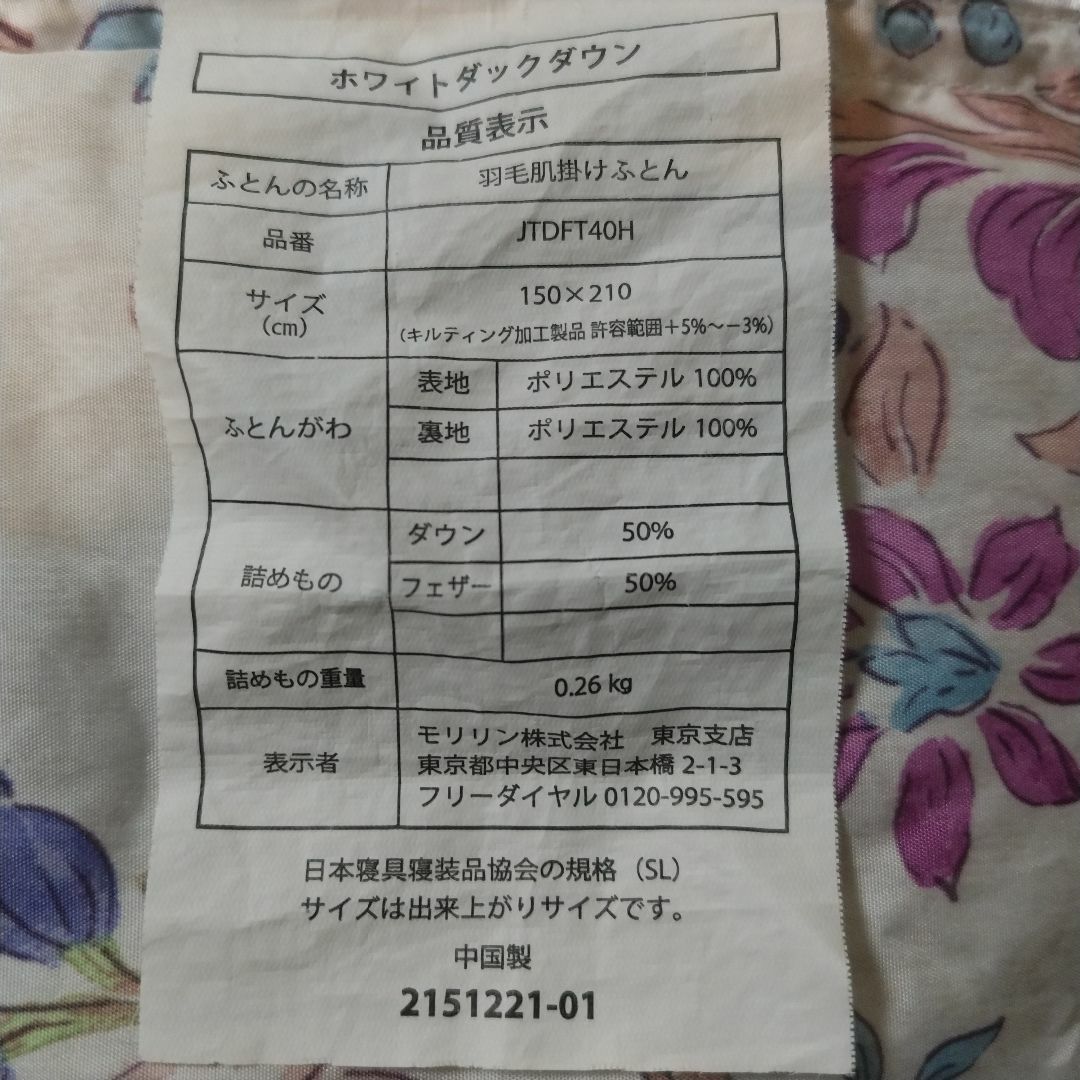 ホワイトダックダウン
品質表示
ふとんの名称 羽毛肌掛けふとん
品番 JTDFT40H
サイズ 150×210
(cm) (キルティング加工製品 許容範囲+5%~-3%)
表地 ポリエステル 100%
ふとんがわ 裏地 ポリエステル 100%
ダウン 50%
詰めもの フェザー 50%
詰めもの重量 0.26 kg
モリリン株式会社 東京支店
表示者 東京都中央区東日本橋 2-1-3
フリーダイヤル 0120-995-595
日本寝具寝装品協会の規格(SL)
サイズは出来上がりサイズです。
中国製
2151221-01